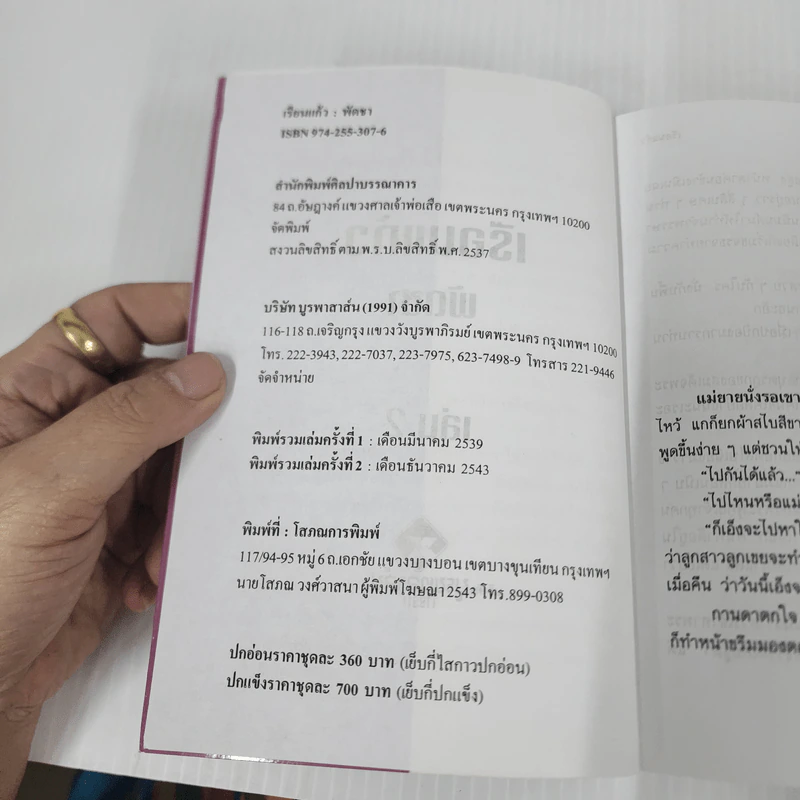 เรือนแก้ว : พัดชา
ISBN 974-255-307-6
สำนักพิมพ์ศิลปาบรรณาคาร
84 ถ.อัษฎางค์ แขวงศาลเจ้าพ่อเสือ เขตพระนคร กรุงเทพฯ 10200
จัดพิมพ์
สงวนลิขสิทธิ์ ตาม พ.ร.บ.ลิขสิทธิ์ พ.ศ. 2537
บริษัท บูรพาสาส์น (1991) จำกัด
116-118 ถ.เจริญกรุง แขวงวังบูรพาภิรมย์ เขตพระนคร กรุงเทพฯ 10200
โทร. 222-3943, 222-7037, 223-7975, 623-7498-9 โทรสาร 221-9446
จัดจำหน่าย
พิมพ์รวมเล่มครั้งที่ 1 : เดือนมีนาคม 2539
พิมพ์รวมเล่มครั้งที่ 2 : เดือนธันวาคม 2543
พิมพ์ที่ : โสภณการพิมพ์
117/94-95 หมู่ 6 ถ.เอกชัย แขวงบางบอน เขตบางขุนเทียน กรุงเทพฯ
นายโสภณ วงศ์วาสนา ผู้พิมพ์โฆษณา 2543 โทร. 899-0308
ปกอ่อนราคาชุดละ 360 บาท (เย็บกี่ไสกาวปกอ่อน)
ปกแข็งราคาชุดละ 700 บาท (เย็บกี่ปกแข็ง)
แม่ยายนั่งรอเขา
ไหว้ แกก็ยกผ้าสไบสีขา
พูดขึ้นง่าย ๆ แต่ชวนให้
“ไปกันได้แล้ว...”
“ไปไหนหรือแม่
“ก็เอ็งจะไปหาใ
ว่าลูกสาวลูกเขยจะทำ
เมื่อคืน ว่าวันนี้เอ็งจ
กานดาตกใจ
ก็ทำหน้าขรึมมองต